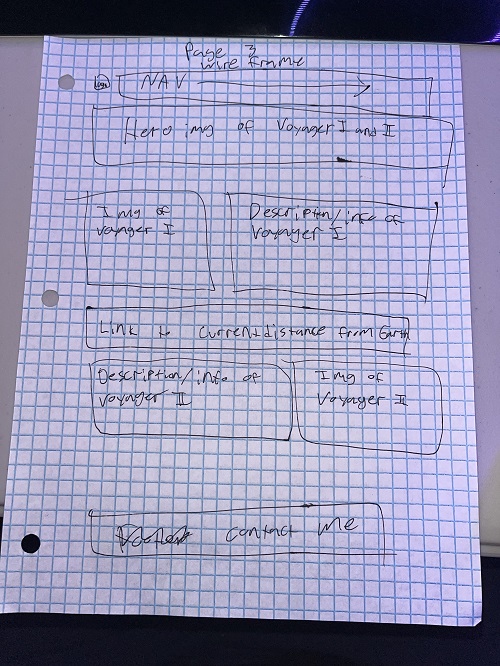 Page 3
wire frame
Logo NAV
Hero img of Voyager I and II
Img of
voyager I
Description/info of
Voyager I
Link to current distance from Earth
Description/info of
Voyager II
Img of
Voyager II
Footer contact me